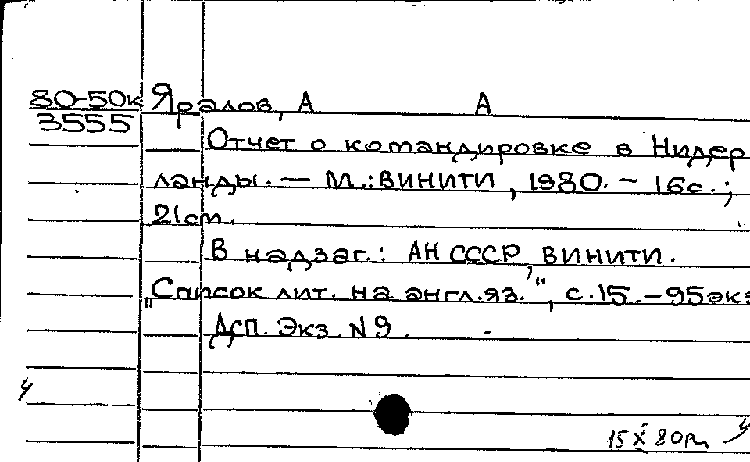 80-50к Яралов, А А
3555
Отчет о командировке в Нидер
ланды. — М.: ВИНИТИ, 1980. - 16с.;
21см.
В надзаг.: АН СССР, ВИНИТИ.
"Список лит. на англ.яз.", с.15.-95экз
Дсп. Экз. N9. -
15 X 80